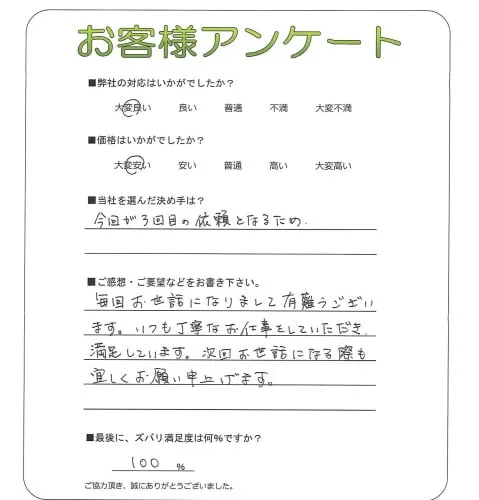 お客様アンケート
■弊社の対応はいかがでしたか？
大変良い 良い 普通 不満 大変不満
■価格はいかがでしたか？
大変安い 安い 普通 高い 大変高い
■当社を選んだ決め手は？
今回が3回目の依頼となるため.
■ご感想・ご要望などをお書き下さい。
毎回お世話になりまして有難うござい
ます。いつも丁寧なお仕事をしていただき
満足しています。次回お世話になる際も
宜しくお願い申上げます。
■最後に、ズバリ満足度は何％ですか？
100 ％
ご協力頂き、誠にありがとうございました。